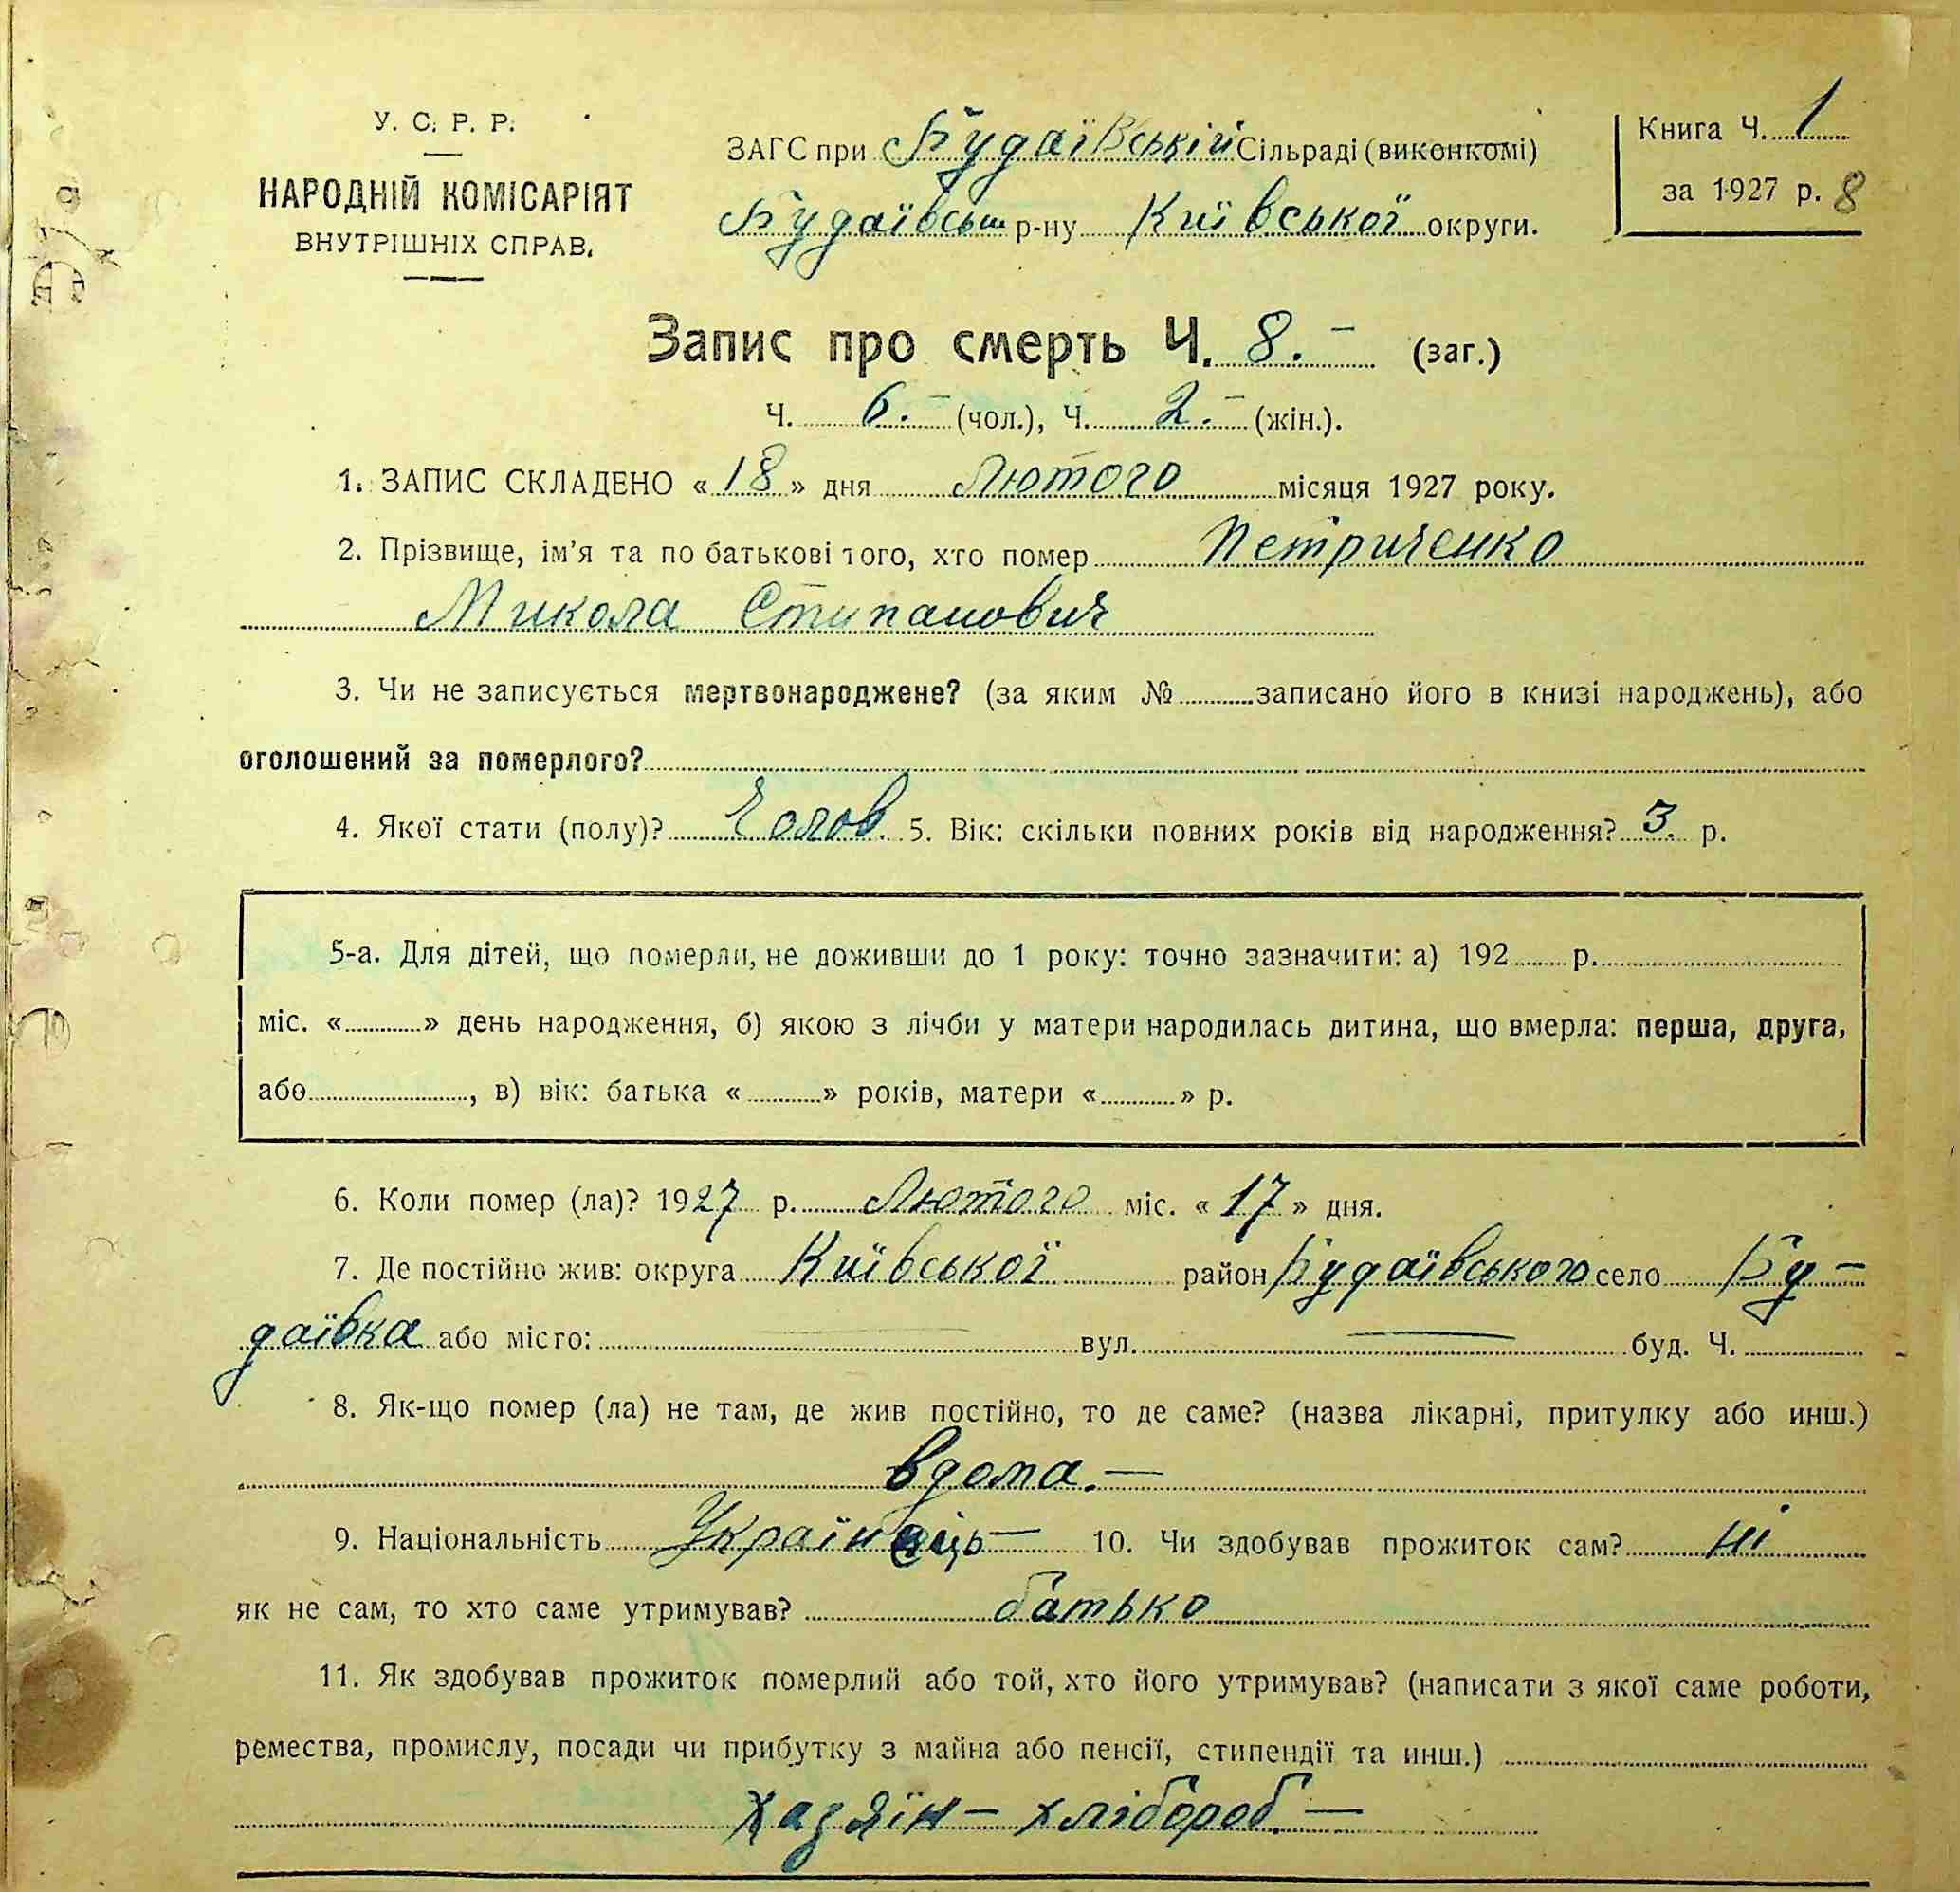 У. С. Р. Р.
НАРОДНІЙ КОМІСАРІЯТ
ВНУТРІШНІХ СПРАВ.
ЗАГС при Будаївській Сільраді (виконкомі)
Будаївськ р-ну Київської округи.
Книга Ч. 1
за 1927 р. 8
Запис про смерть Ч. 8. – (заг.)
Ч. 6. – (чол.), Ч. 2. – (жін.).
1. ЗАПИС СКЛАДЕНО « 18 » дня Лютого місяця 1927 року.
2. Прізвище, ім'я та по батькові того, хто помер Петриченко
Микола Стипанович
3. Чи не записується мертвонароджене? (за яким № записано його в книзі народжень), або
оголошений за померлого?
4. Якої стати (полу)? Чолов. 5. Вік: скільки повних років від народження? 3. р.
5-а. Для дітей, що померли, не доживши до 1 року: точно зазначити: а) 192 р.
міс. « » день народження, б) якою з лічби у матери народилась дитина, що вмерла: перша, друга,
або , в) вік: батька « » років, матери « » р.
6. Коли помер (ла)? 1927 р. Лютого міс. « 17 » дня.
7. Де постійно жив: округа Київської район Будаївського село Бу-
даївка або місто: — вул. — буд. Ч.
8. Як-що помер (ла) не там, де жив постійно, то де саме? (назва лікарні, притулку або инш.)
вдома. —
9. Національність Українець — 10. Чи здобував прожиток сам? ні
як не сам, то хто саме утримував? батько
11. Як здобував прожиток померлий або той, хто його утримував? (написати з якої саме роботи,
ремества, промислу, посади чи прибутку з майна або пенсії, стипендії та инш.)
Хадяїн — хлібороб. —